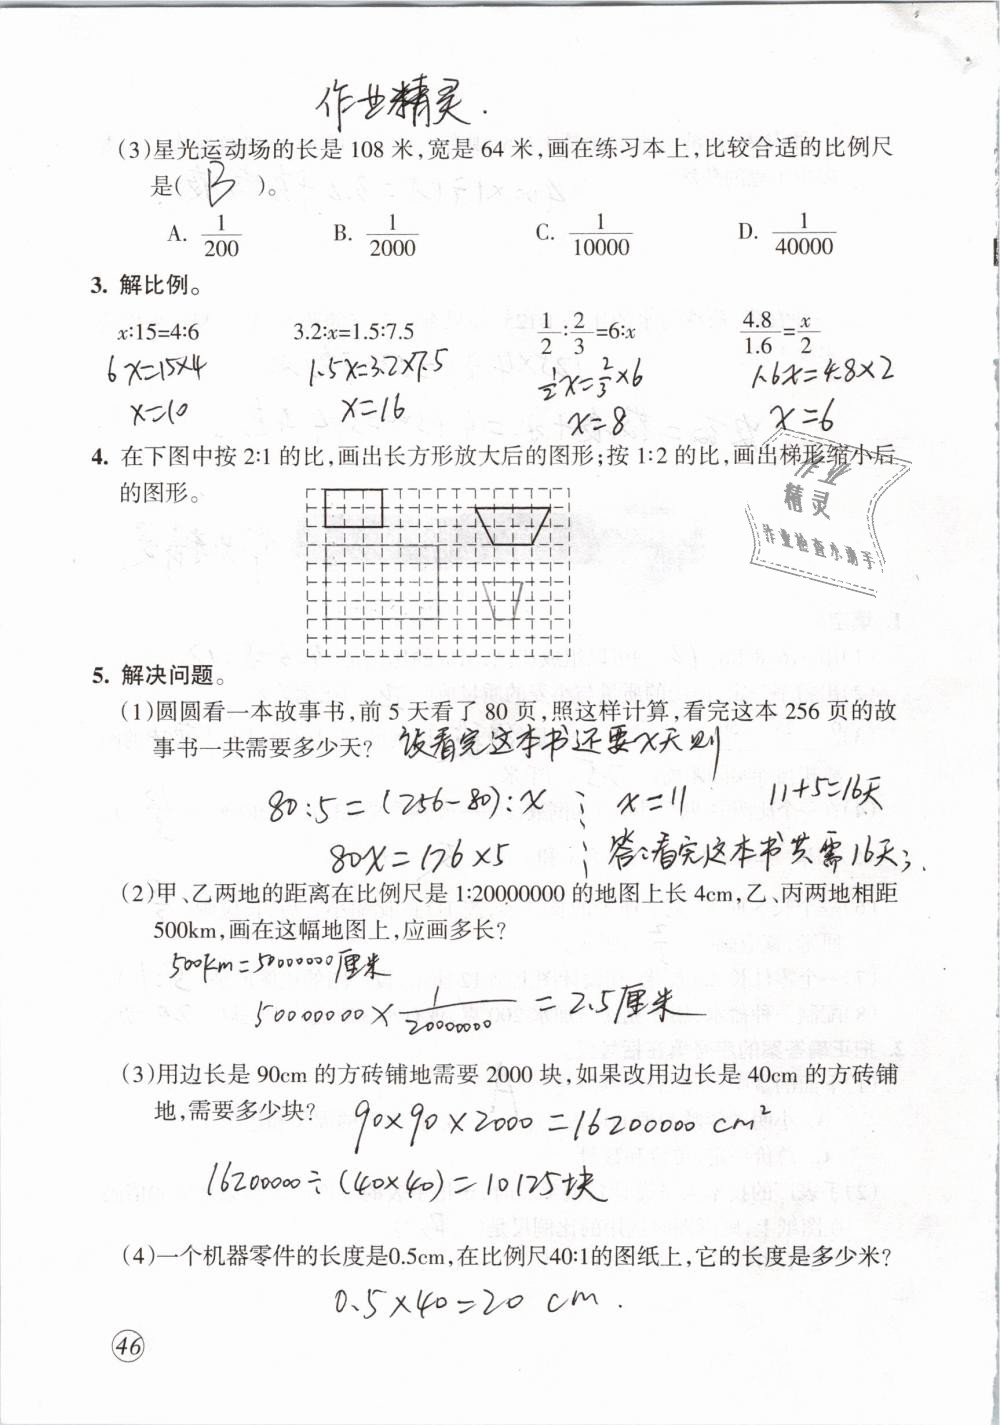 作业精灵.
(3)星光运动场的长是 108 米,宽是 64 米,画在练习本上,比较合适的比例尺
是( B )。
A. 1/200 B. 1/2000 C. 1/10000 D. 1/40000
3. 解比例。
x∶15=4∶6 3.2∶x=1.5∶7.5 1/2∶2/3=6∶x 4.8/1.6=x/2
6x=15×4 1.5x=3.2×7.5 1/2x=2/3×6 1.6x=4.8×2
x=10 x=16 x=8 x=6
4. 在下图中按 2∶1 的比,画出长方形放大后的图形;按 1∶2 的比,画出梯形缩小后
的图形。
作业
精灵
作业检查小助手
5. 解决问题。
(1)圆圆看一本故事书,前 5 天看了 80 页,照这样计算,看完这本 256 页的故
事书一共需要多少天? 设看完这本书还要x天则
80:5=(256-80):x x=11 11+5=16天
80x=176×5 答:看完这本书共需16天
(2)甲、乙两地的距离在比例尺是 1∶20000000 的地图上长 4cm,乙、丙两地相距
500km,画在这幅地图上,应画多长?
500km=50000000厘米
50000000×1/20000000=2.5厘米
(3)用边长是 90cm 的方砖铺地需要 2000 块,如果改用边长是 40cm 的方砖铺
地,需要多少块? 90×90×2000=16200000cm²
16200000÷(40×40)=10125块
(4)一个机器零件的长度是0.5cm,在比例尺40∶1的图纸上,它的长度是多少米?
0.5×40=20 cm.
46